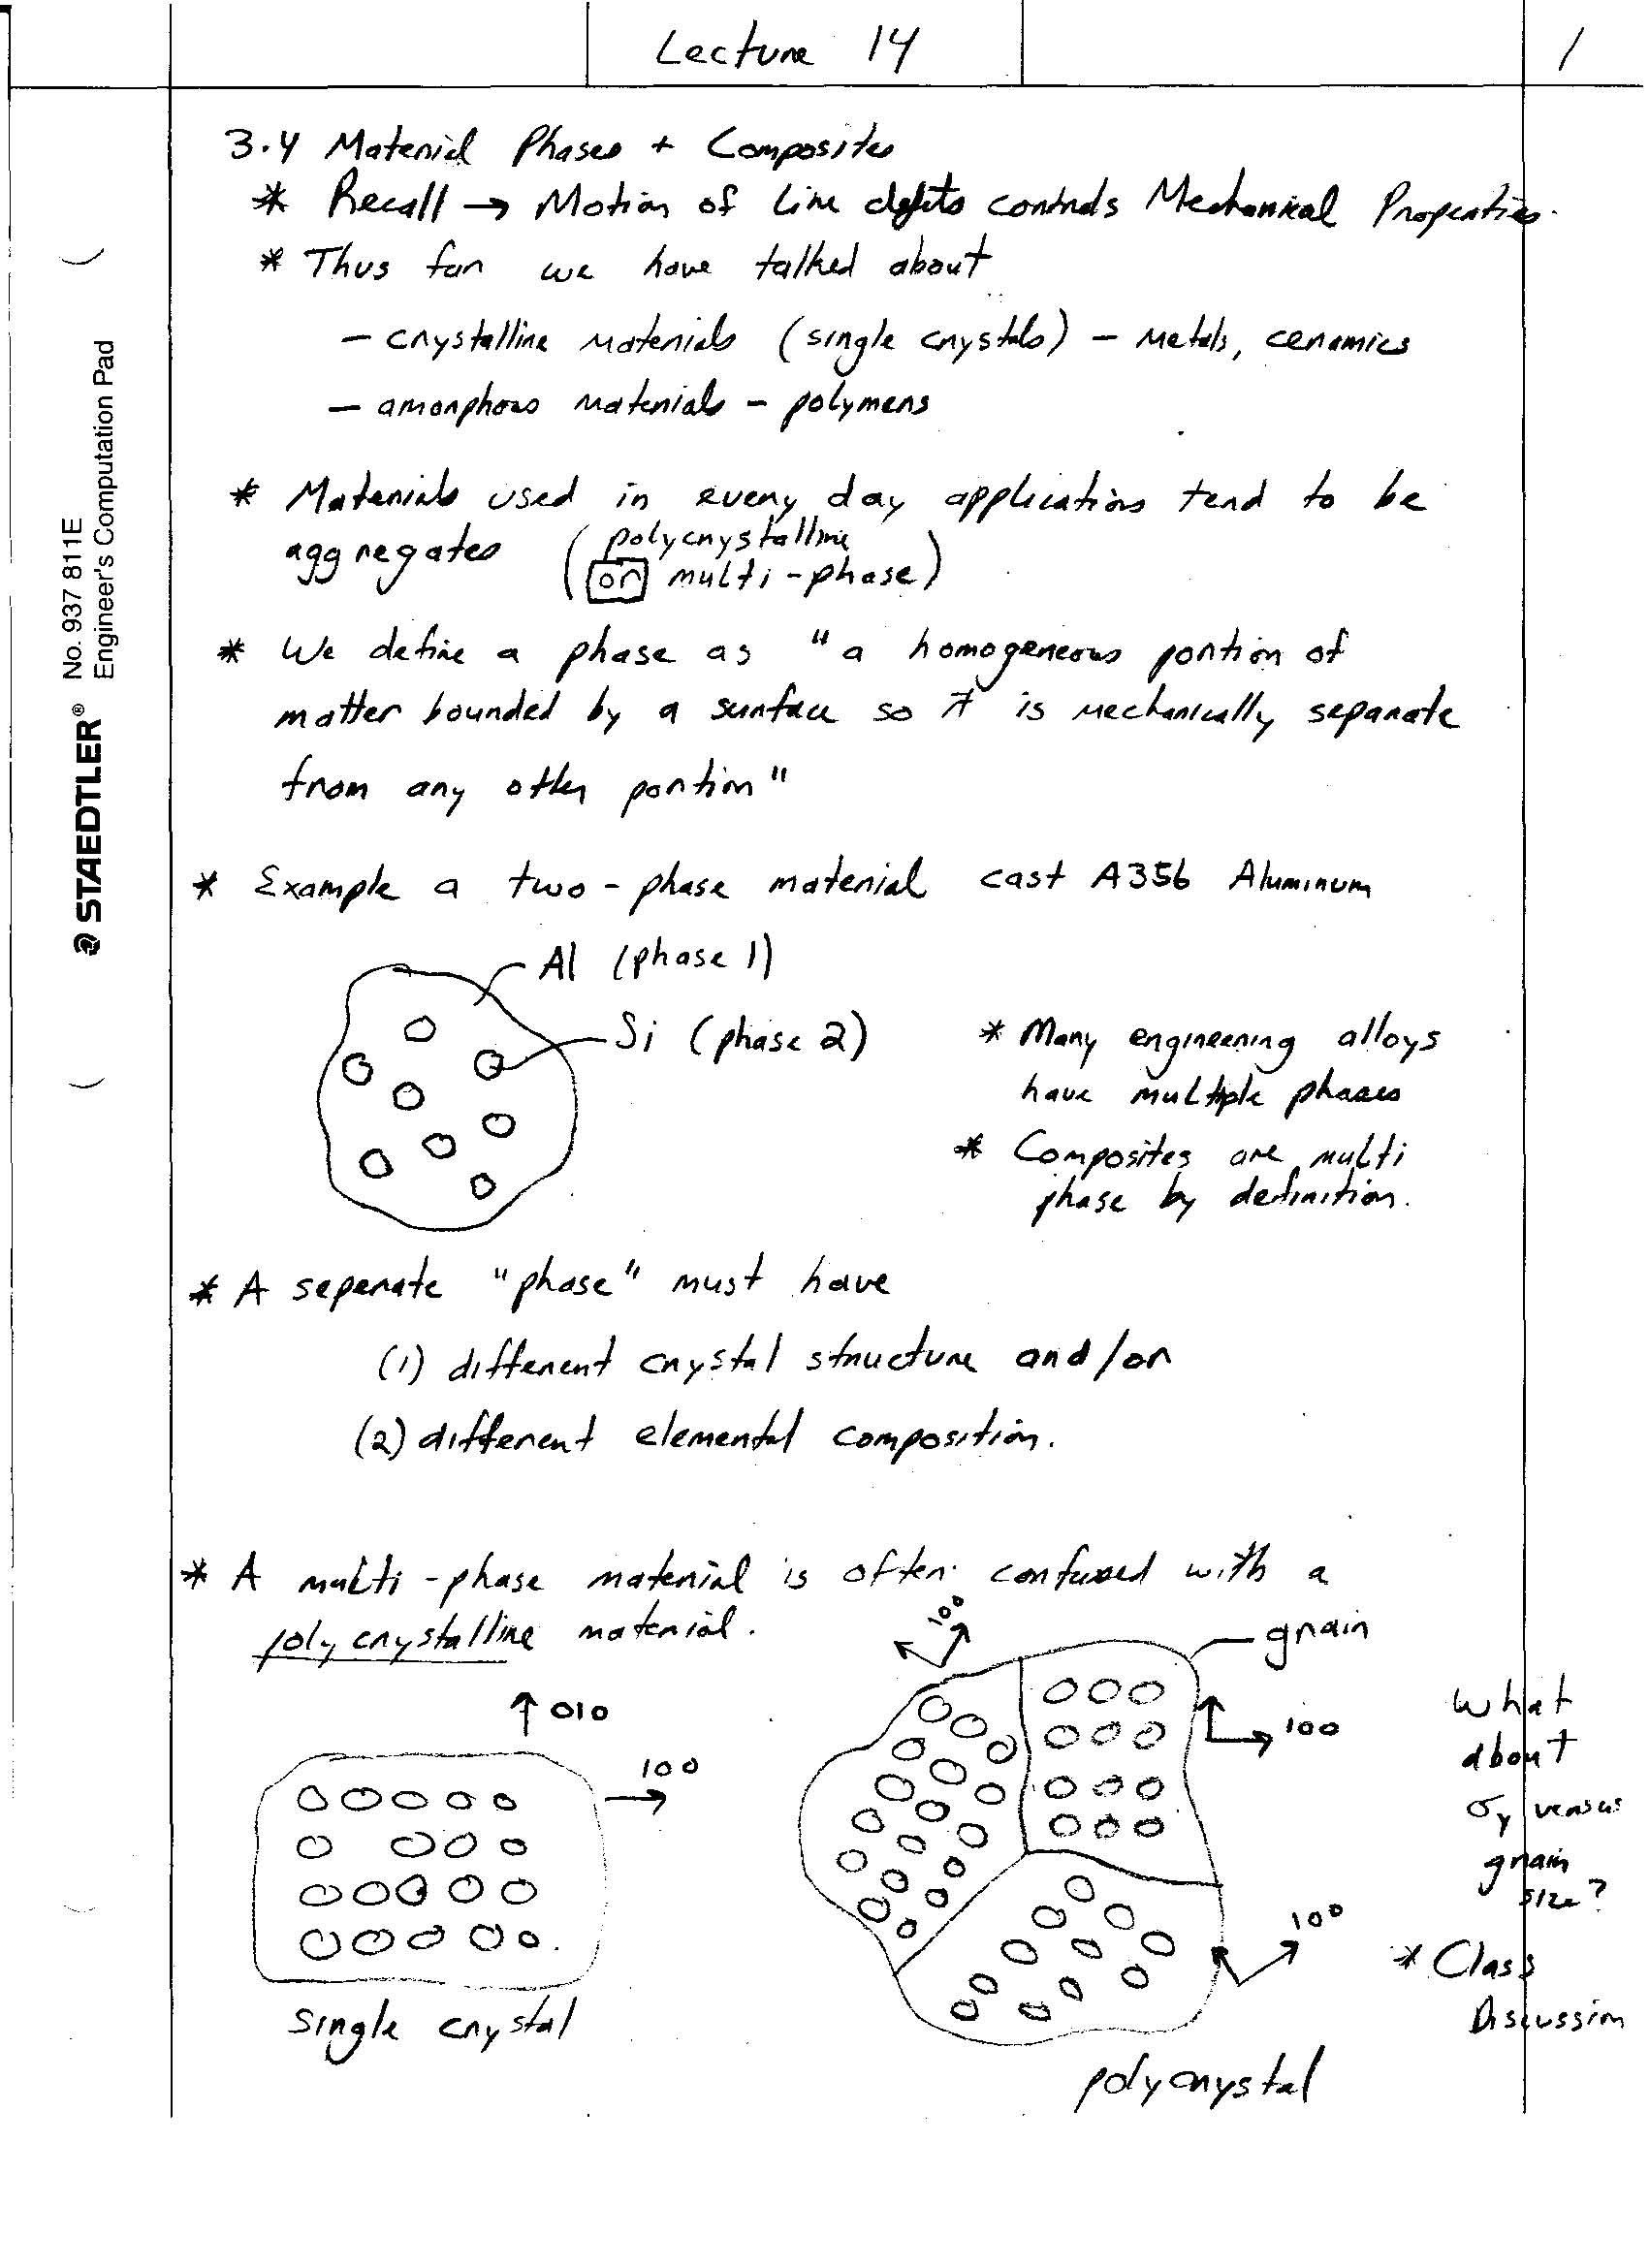 Lecture 14
1
3.4 Material Phases + Composites
* Recall → Motion of Line defects controls Mechanical Properties.
* Thus far we have talked about
- crystalline materials (single crystals) - metals, ceramics
- amorphous materials - polymers
* Materials used in every day applications tend to be
aggregates (polycrystalline
or multi-phase)
* We define a phase as "a homogeneous portion of
matter bounded by a surface so it is mechanically separate
from any other portion"
* Example a two-phase material cast A356 Aluminum
Al (phase 1)
Si (phase 2)
* Many engineering alloys
have multiple phases
* Composites are multi
phase by definition.
* A seperate "phase" must have
(1) different crystal structure and/or
(2) different elemental composition.
* A multi-phase material is often confused with a
polycrystalline material.
010
100
single crystal
100
grain
100
100
polycrystal
What
about
σy versus
grain
size?
* Class
Discussion
No. 937 811E
Engineer's Computation Pad
STAEDTLER®